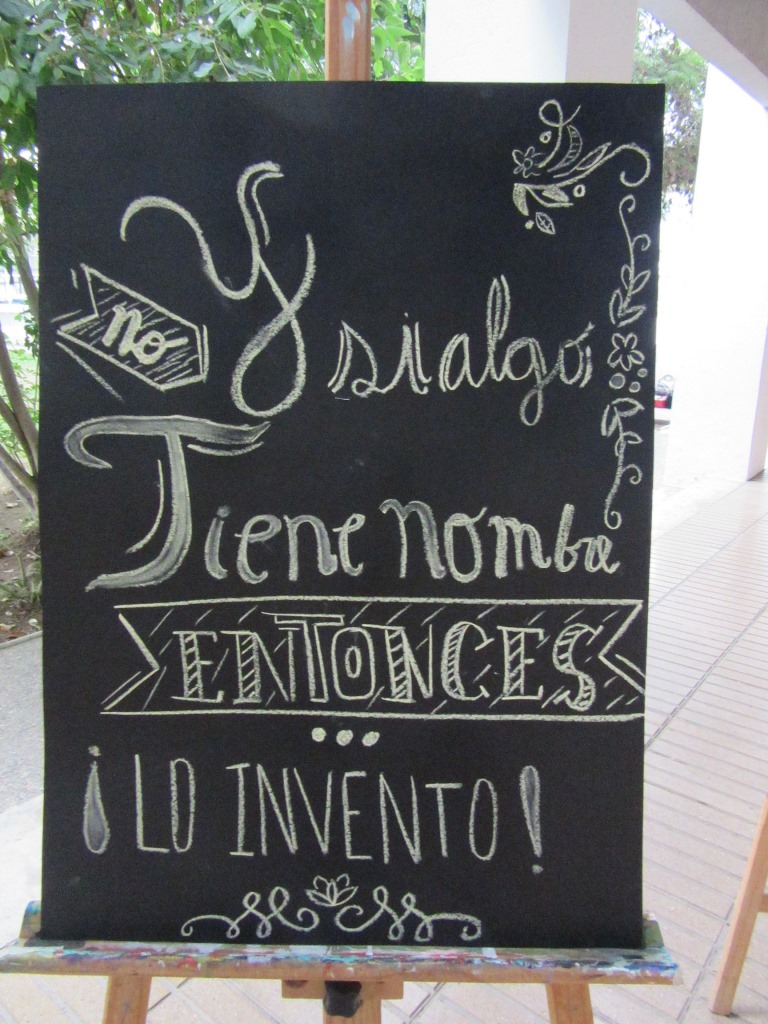 Y si algo
no
Tiene nombre
ENTONCES
...
¡LO INVENTO!